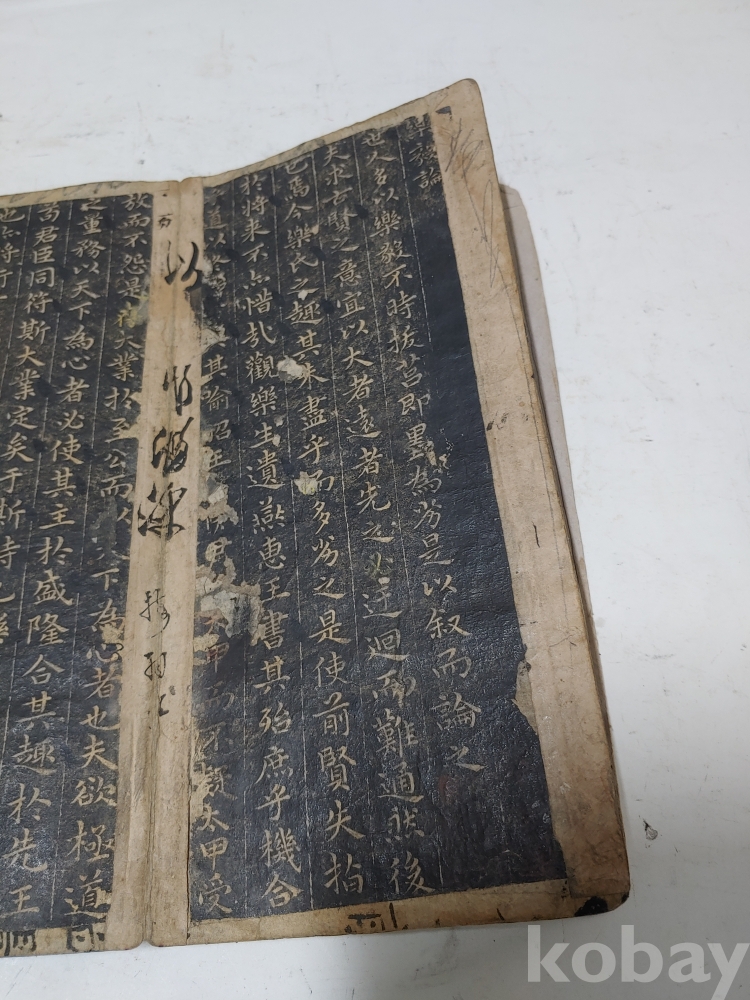 樂毅論
世人多以樂毅不時拔莒即墨為劣是以叙而論之
夫求古賢之意宜以大者遠者先之必迂迴而難通然後
已焉今樂氏之趣其未盡乎而多劣之是使前賢失指
於將來不亦惜哉觀樂生遺燕惠王書其殆庶乎機合
道以 其喻昭王 伊尹 甲而不疑太甲受
以
放而不怨是存大業於至公而以天下為心者也夫欲極道
之量務以天下為心者必使其主於盛隆合其趣於先王
苟君臣同符斯大業定矣于斯時也樂
也亦將行
kobay